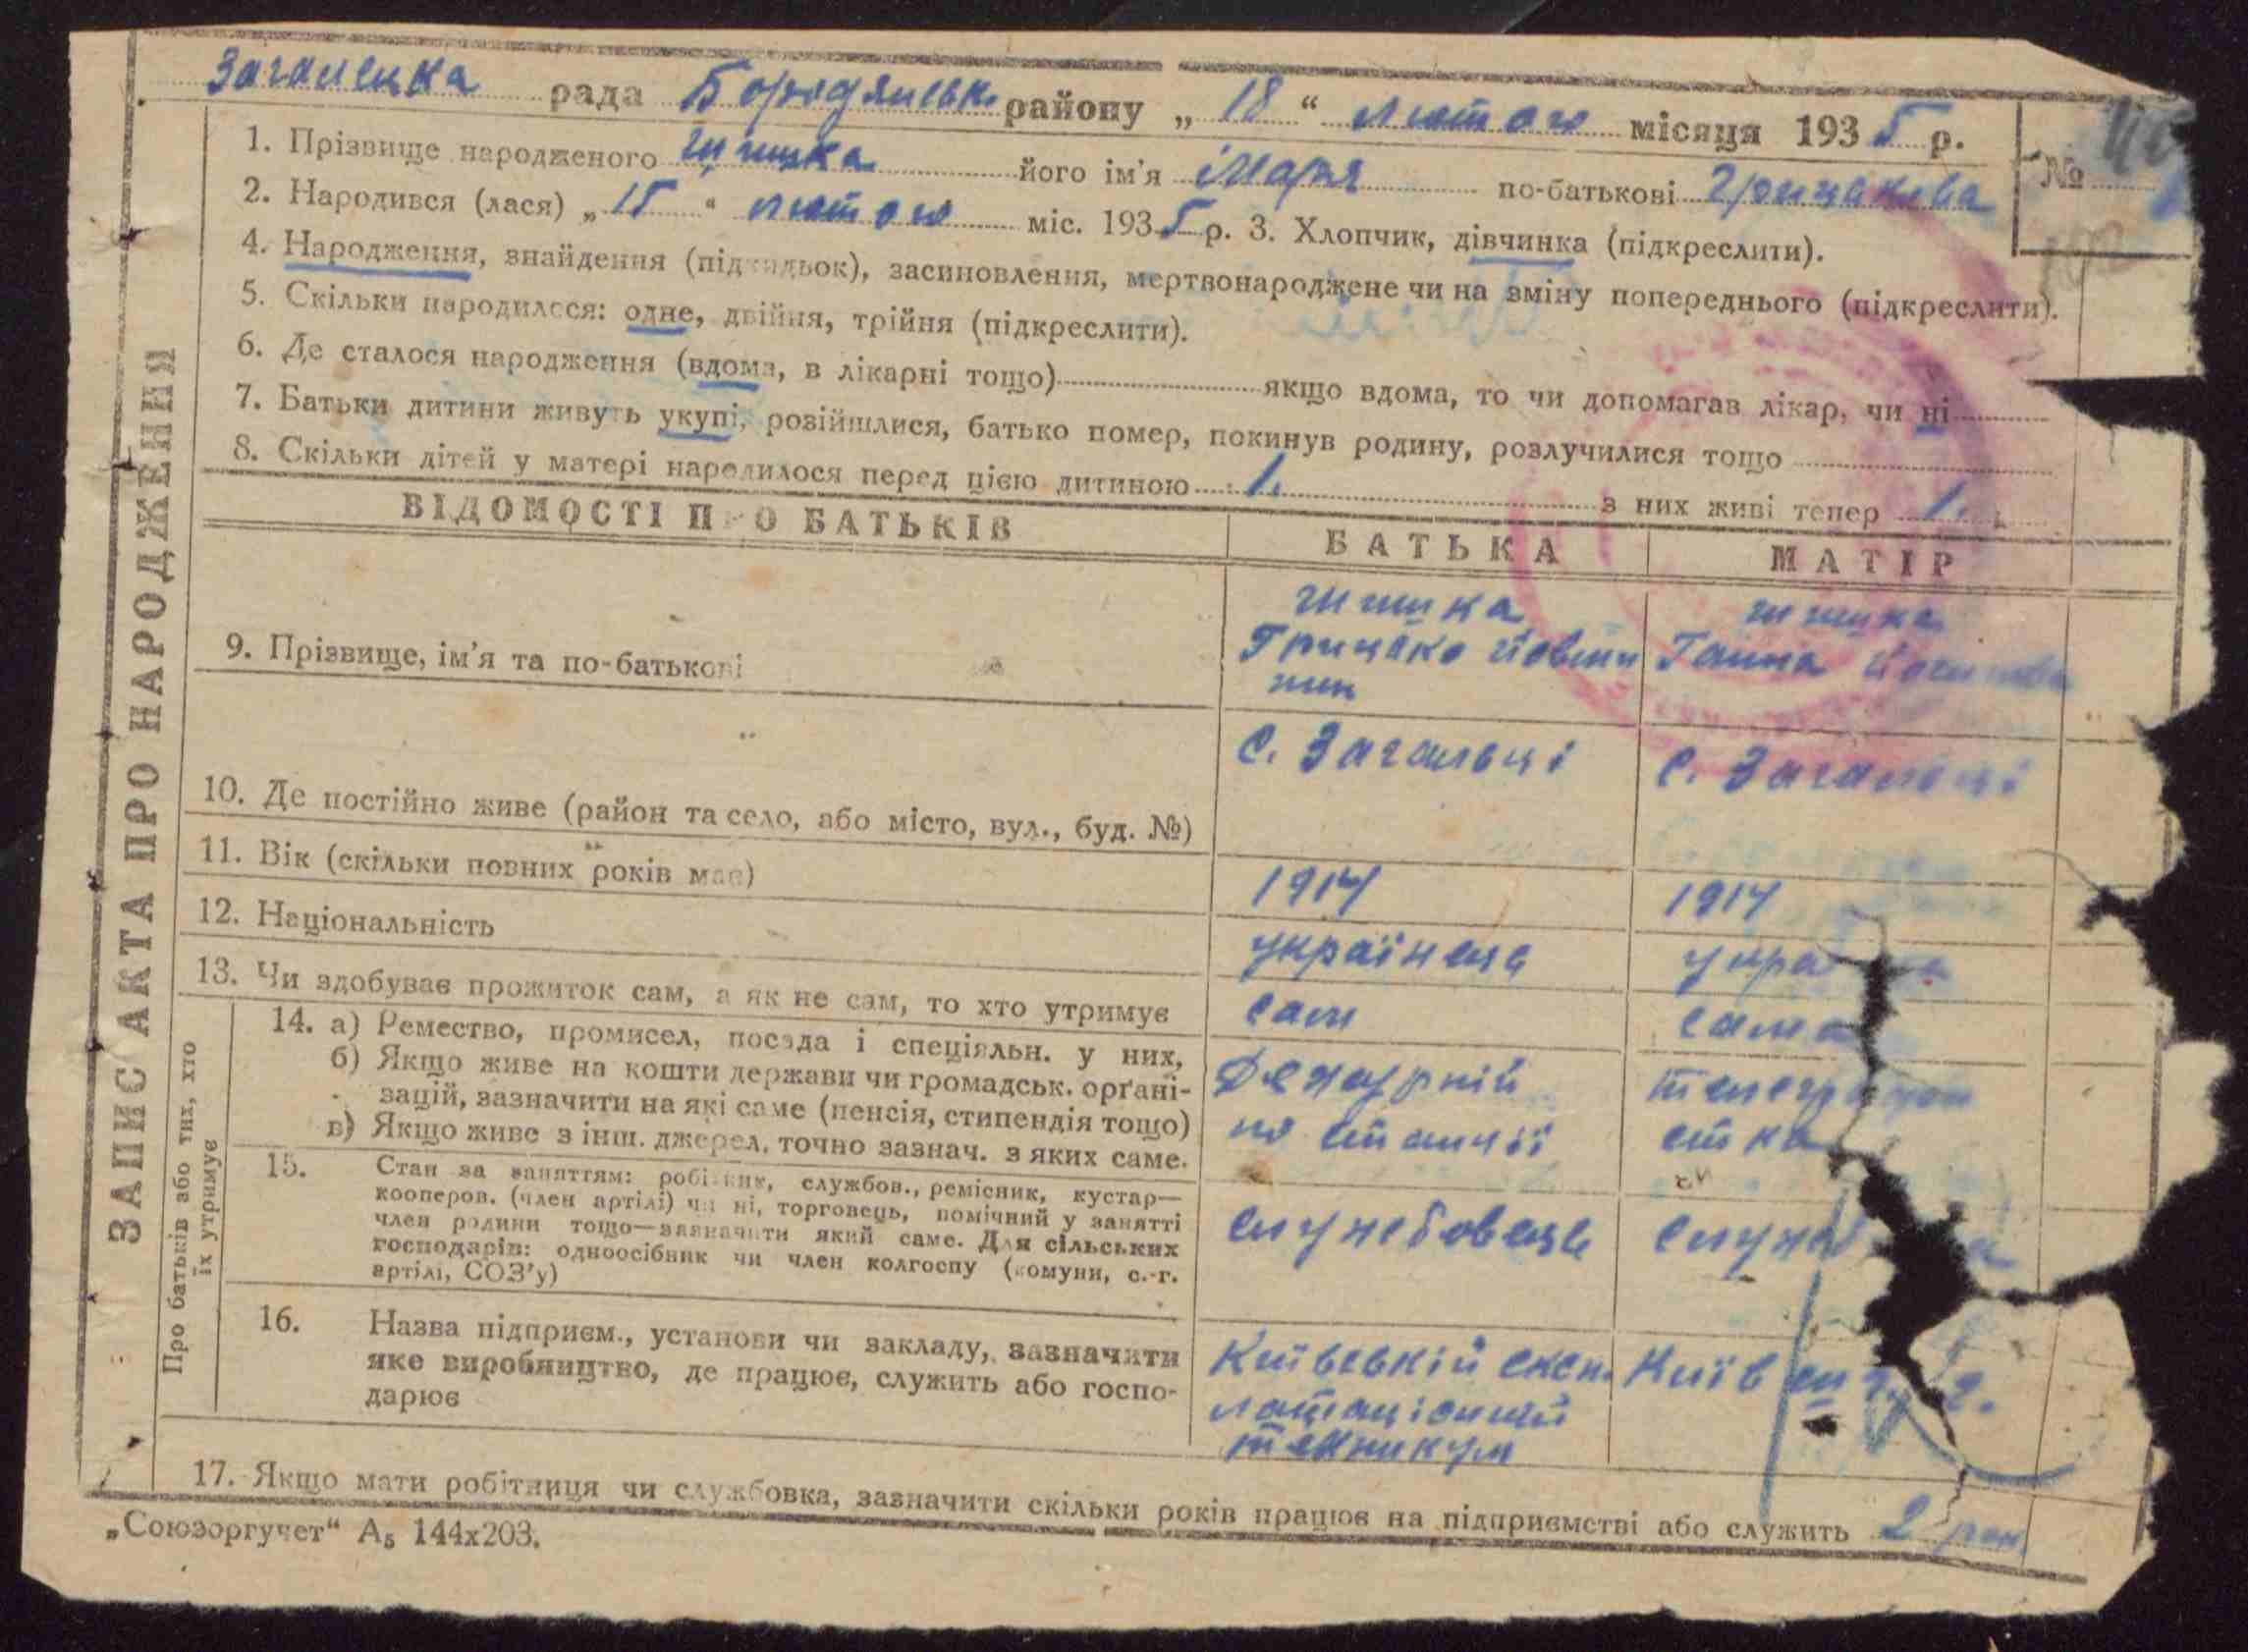 Загалецка рада Бородянськ. району „18“ лютого місяця 1935 р.
№
1. Прізвище народженого Шишка його ім'я Марія по-батькові Грицькова
2. Народився (лася) „15“ лютого міс. 1935 р. 3. Хлопчик, дівчинка (підкреслити).
4. Народження, знайдення (підкидьок), засиновлення, мертвонароджене чи на зміну попереднього (підкреслити).
5. Скільки народилося: одне, двійня, трійня (підкреслити).
6. Де сталося народження (вдома, в лікарні тощо) якщо вдома, то чи допомагав лікар, чи ні
7. Батьки дитини живуть укупі, розійшлися, батько помер, покинув родину, розлучилися тощо
8. Скільки дітей у матері народилося перед цією дитиною 1. з них живі тепер 1.
ЗАПИС АКТА ПРО НАРОДЖЕННЯ
ВІДОМОСТІ ПРО БАТЬКІВ БАТЬКА МАТІР
Шишка Шишка
9. Прізвище, ім'я та по-батькові Грицько Ганна
с. Загальці с. Загальці
10. Де постійно живе (район та село, або місто, вул., буд. №)
11. Вік (скільки повних років має) 1914 1914
12. Національність українець
13. Чи здобуває прожиток сам, а як не сам, то хто утримує сам сама
Про батьків або тих, хто
їх утримує
14. а) Ремество, промисел, посада і спеціяльн. у них,
б) Якщо живе на кошти держави чи громадськ. орґані-
зацій, зазначити на які саме (пенсія, стипендія тощо)
в) Якщо живе з інш. джерел, точно зазнач. з яких саме.
Дежурній
по станції
15. Стан за заняттям: робітник, службов., ремісник, кустар—
кооперов. (член артілі) чи ні, торговець, помічний у занятті
член родини тощо—зазначити який саме. Для сільських
господарів: одноосібник чи член колгоспу (комуни, с.-г.
артілі, СОЗ'у)
службовець
16. Назва підприєм., установи чи закладу, зазначити
яке виробництво, де працює, служить або госпо-
дарює
Київській експ.
лотаціоний
технікум
Київ
17. Якщо мати робітниця чи службовка, зазначити скільки років працює на підприємстві або служить 2 рок
„Союзоргучет“ А5 144х203.